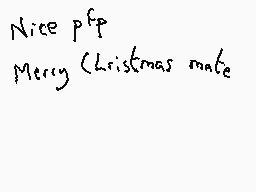 Nice pfp
Merry Christmas mate